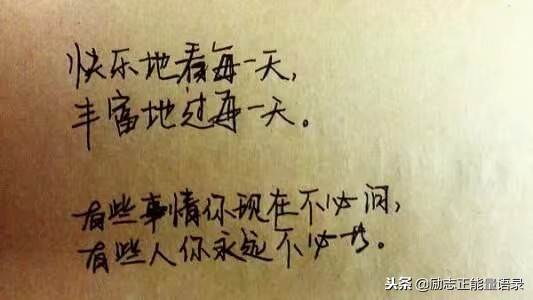 快乐地看每一天,
丰富地过每一天。
有些事情你现在不必问,
有些人你永远不必等。
头条 @励志正能量语录